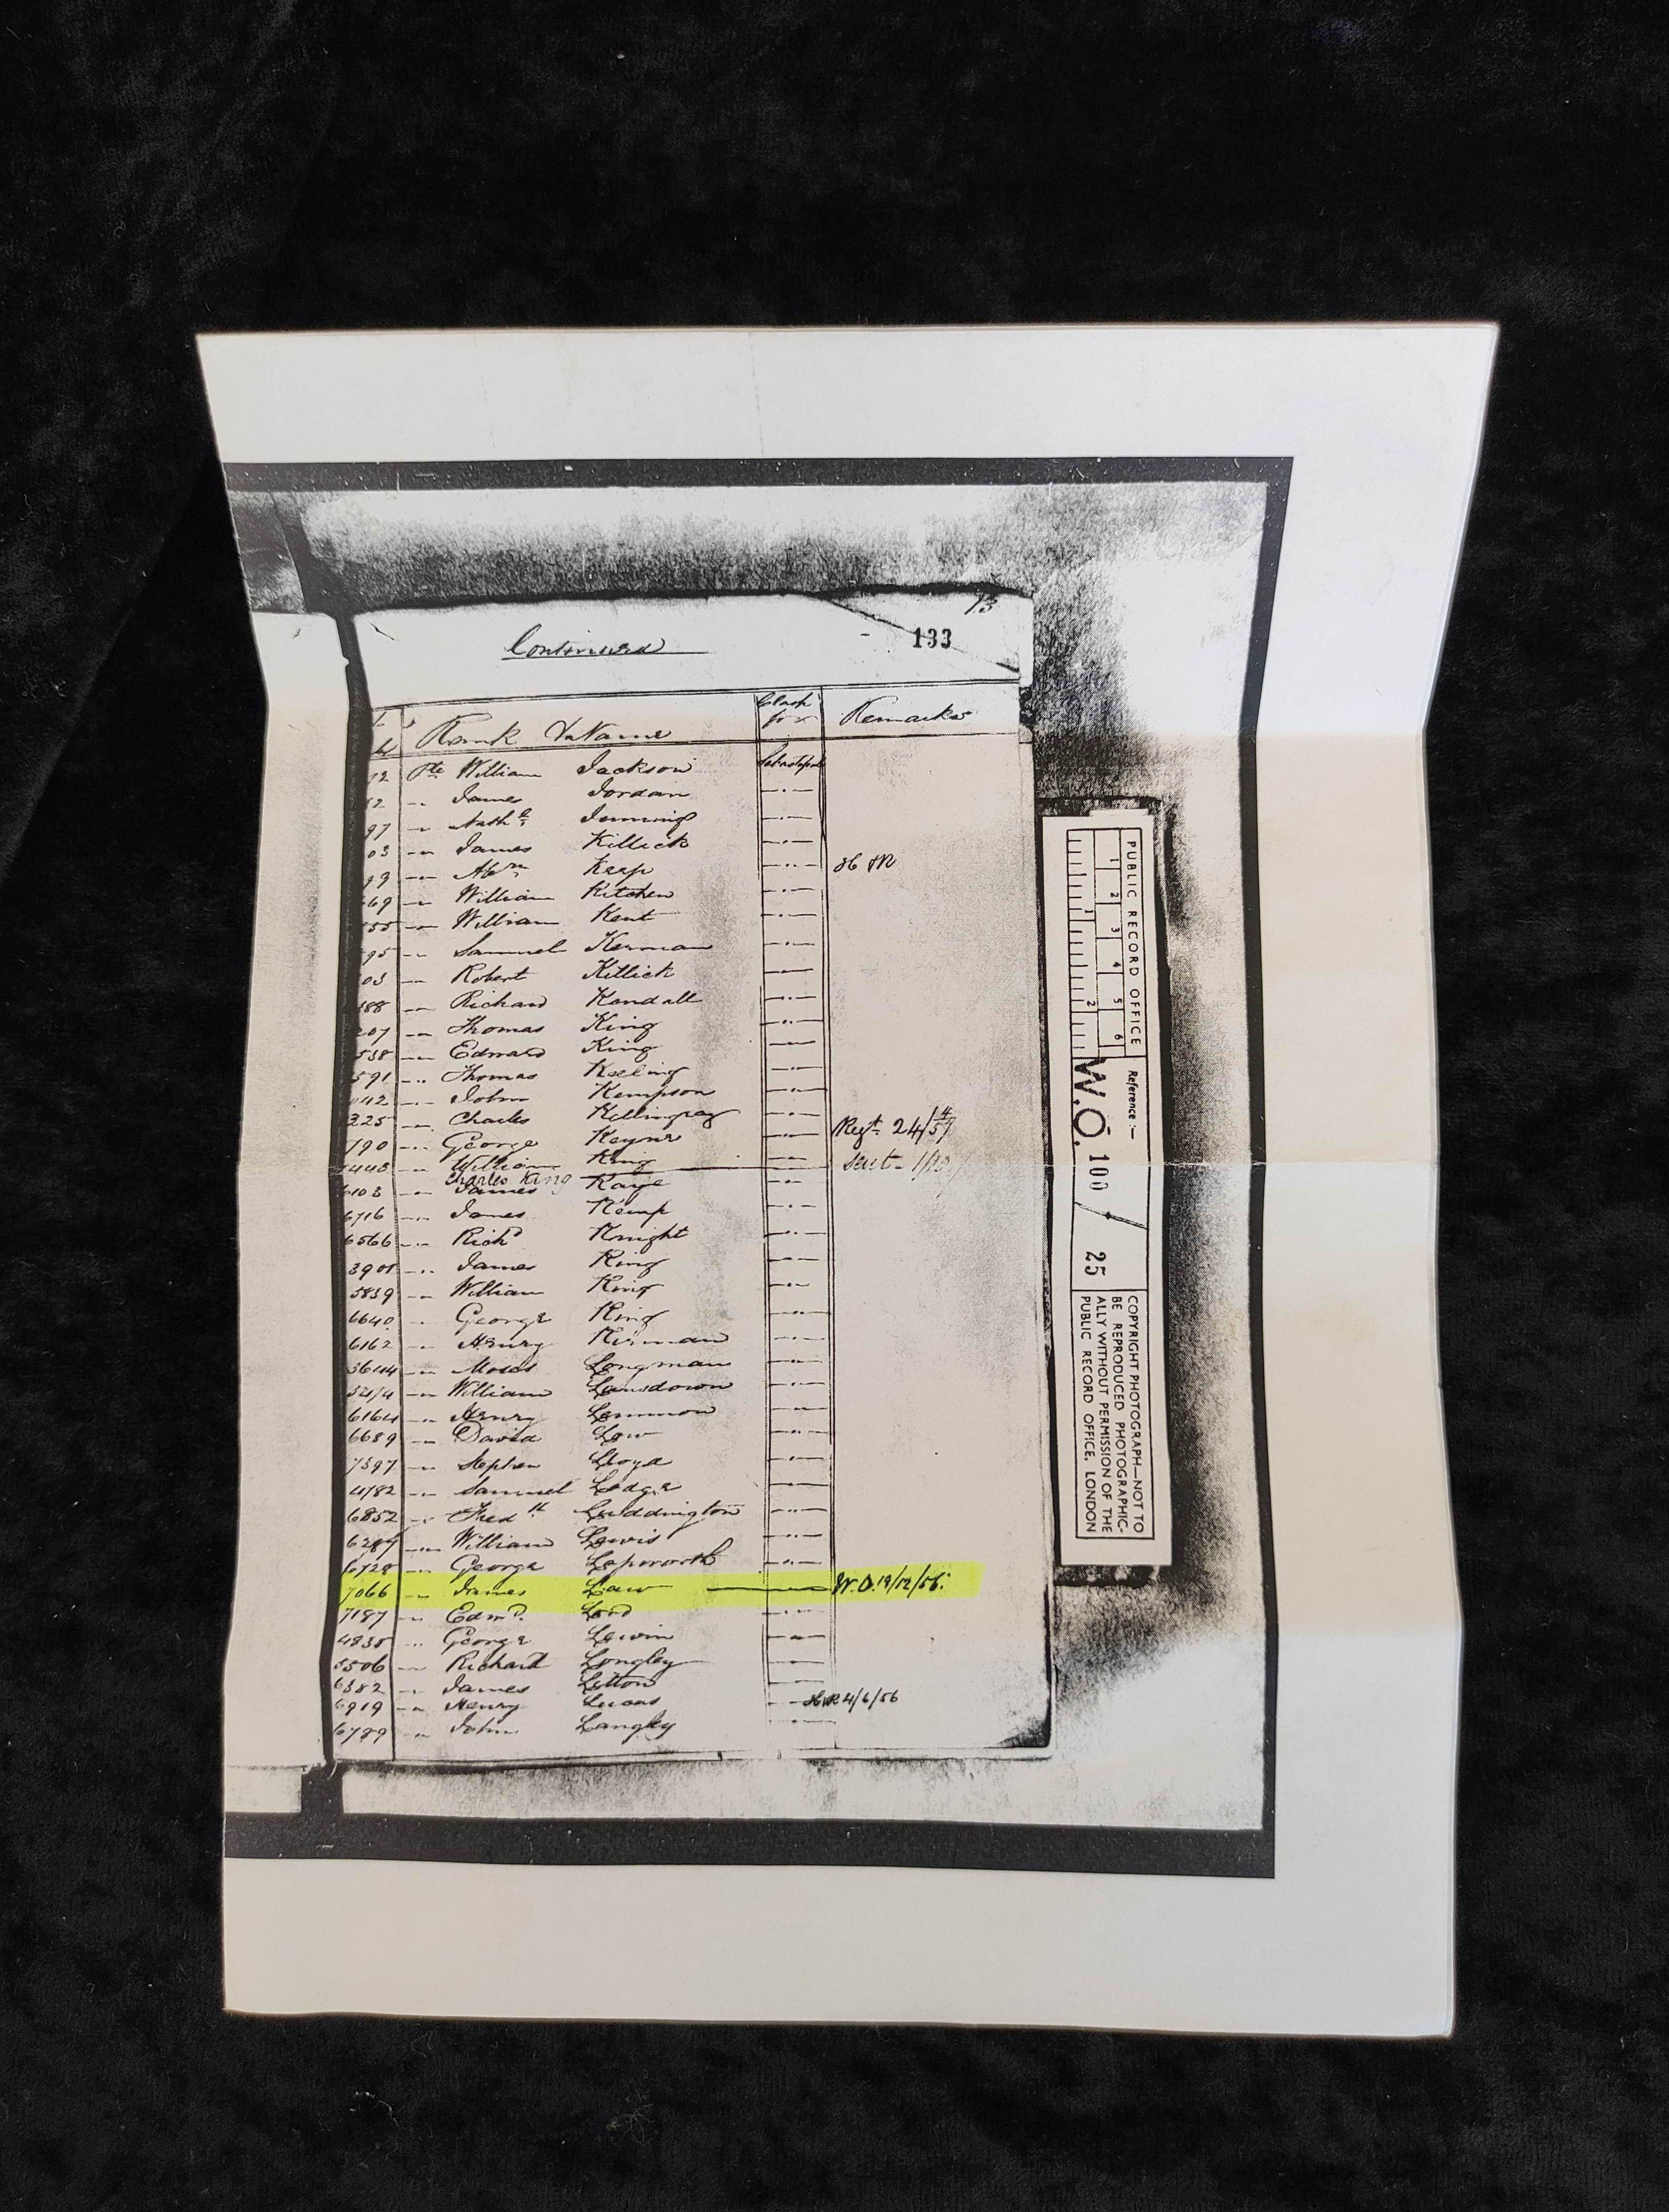 73
133
Continued
Rank & Name Clasp for Remarks
12 Pte William Jackson Sebastopol
52 " James Jordan
97 " Nath Jenning
03 " James Killick
99 " Abm Keep
669 " William Kitchen
555 " William Kent
95 " Samuel Kerman
03 " Robert Killick
388 " Richard Kendall
207 " Thomas King
538 " Edward King
591 " Thomas Keeling
042 " John Kempson
225 " Charles Killingray
790 " George Keyne Regt. 24/4/57
4448 " William King Sent 1/
Charles King
6103 " James Kaye
6716 " James Kemp
6566 " Richd Knight
3901 " James King
5839 " William King
6640 " George King
6162 " Henry Kirman
3644 " Moses Longman
3214 " William Lansdown
6164 " Henry Lemmon
6689 " David Low
7397 " Stephen Lloyd
4182 " Samuel Lodge
6852 " Fredk Luddington
6289 " William Lewis
6728 " George Lapworth
7066 " James Law W.O. 19/12/56
7187 " Edmd. Lord
4835 " George Lewin
5506 " Richard Longley
6382 " James Litton
6919 " Henry Lucas 4/6/56
6789 " John Langley
PUBLIC RECORD OFFICE
1 2 3 4 5 6
1 2
Reference :-
W.O. 100 / 25
COPYRIGHT PHOTOGRAPH—NOT TO
BE REPRODUCED PHOTOGRAPHIC-
ALLY WITHOUT PERMISSION OF THE
PUBLIC RECORD OFFICE, LONDON